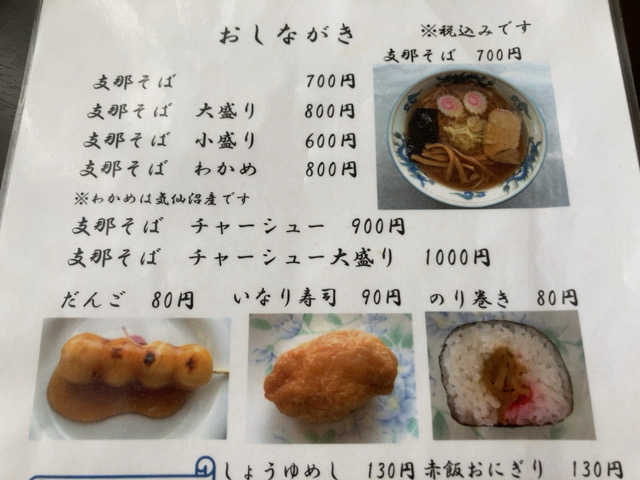 おしながき ※税込みです
支那そば 700円
支那そば 700円
支那そば 大盛り 800円
支那そば 小盛り 600円
支那そば わかめ 800円
※わかめは気仙沼産です
支那そば チャーシュー 900円
支那そば チャーシュー大盛り 1000円
だんご 80円 いなり寿司 90円 のり巻き 80円
しょうゆめし 130円 赤飯おにぎり 130円